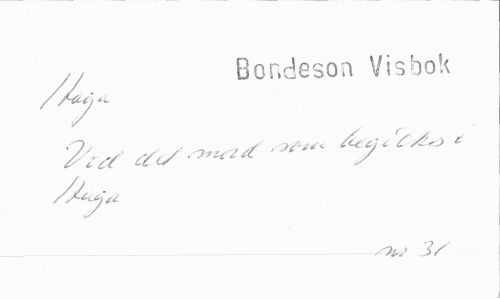 Bondeson Visbok
Haga
Vid det mord som begicks i
Haga
no 31